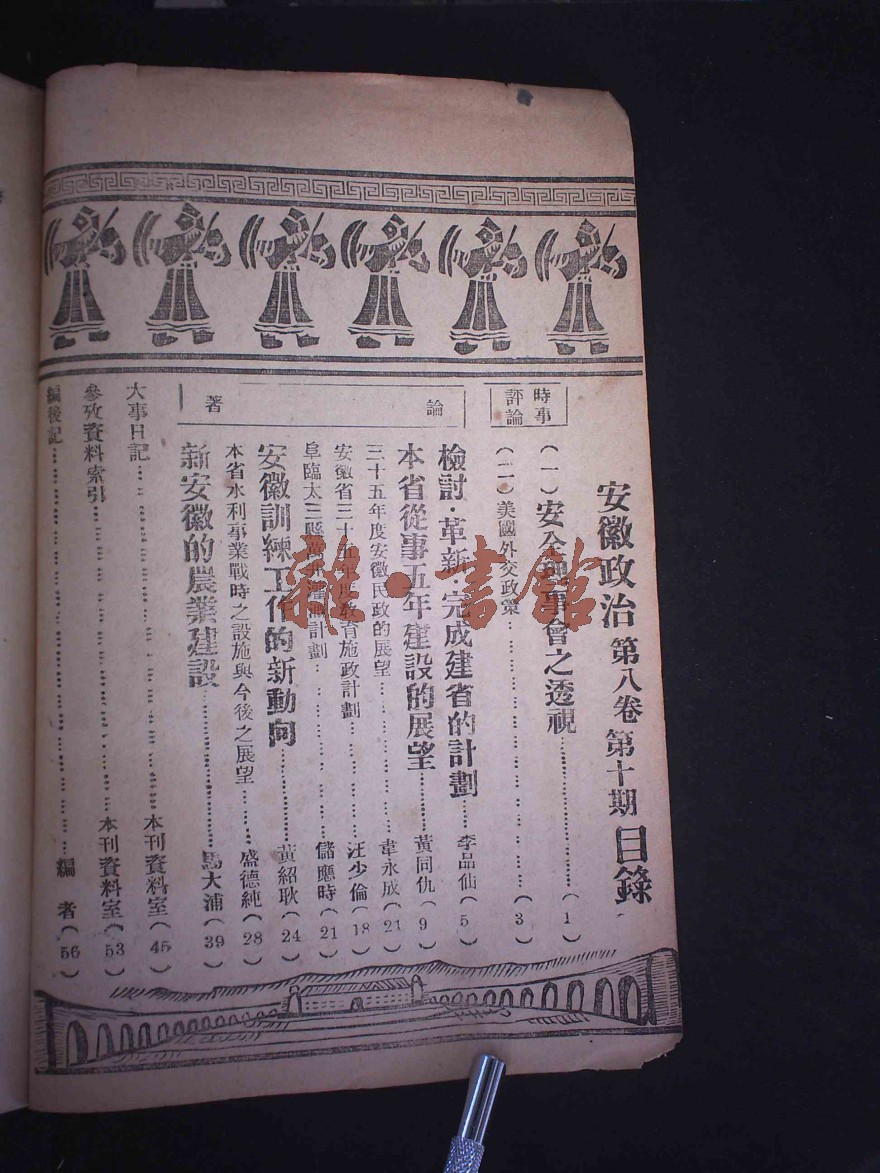 安徽政治 第八卷 第十期 目錄
時事評論
(一)安全理事會之透視……(1)
(二)美國外交政策……(3)
論著
檢討·革新·完成建省的計劃……李品仙(5)
本省從事五年建設的展望……黃同仇(9)
三十五年度安徽民政的展望……韋永成(21)
安徽省三十五年度教育施政計劃……汪少倫(18)
阜臨太三縣萬井灌溉計劃……儲應時(21)
安徽訓練工作的新動向……黃紹耿(24)
本省水利事業戰時之設施與今後之展望……盛德純(28)
新安徽的農業建設……馬大浦(39)
大事日記……本刊資料室(45)
參攷資料索引……本刊資料室(53)
編後記……編者(56)
雜·書館